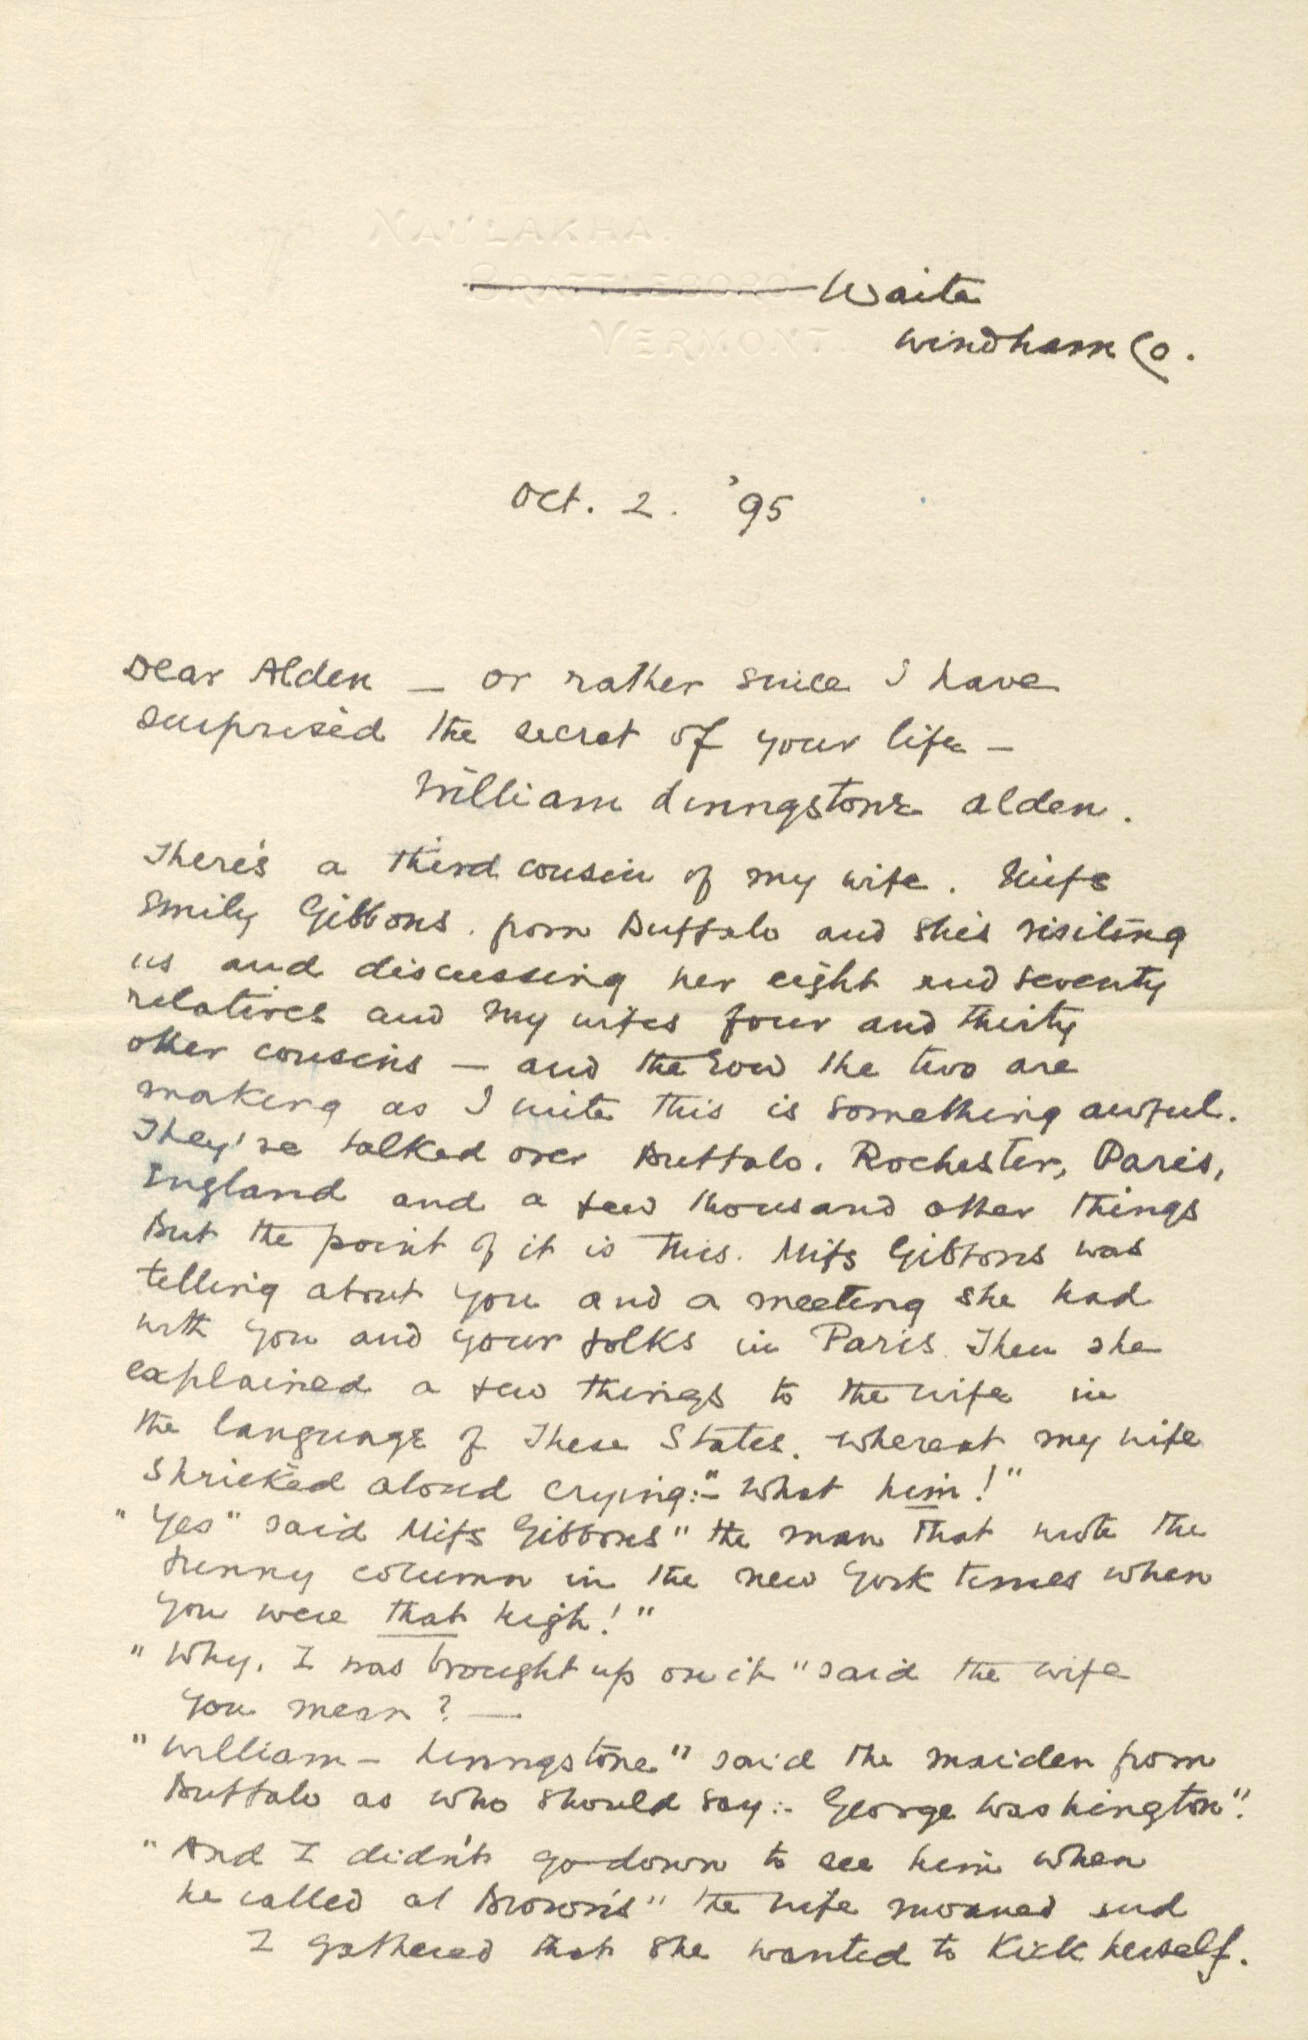 NAULAKHA.
BRATTLEBORO Waite
VERMONT. Windham Co.
Oct. 2. '95
Dear Alden — or rather since I have
surprised the secret of your life —
William Livingstone Alden.
There's a third cousin of my wife. Miss
Emily Gibbons. from Buffalo and she's visiting
us and discussing her eight and seventy
relatives and my wifes four and thirty
other cousins — and the row the two are
making as I write this is something awful.
They've talked over Buffalo. Rochester, Paris,
England and a few thousand other things
But the point of it is this. Miss Gibbons was
telling about you and a meeting she had
with you and your folks in Paris. Then she
explained a few things to the wife in
the language of These States. Whereat my wife
shrieked aloud crying:–"What him!"
"Yes" said Miss Gibbons "the man that wrote the
funny column in the New York times when
you were that high!"
"Why, I was brought up on it" said the wife
you mean? —
"William – Livingstone" said the maiden from
Buffalo as who should say:- George Washington".
"And I didn't go down to see him when
he called at Brown's" the wife moaned and
I gathered that she wanted to kick herself.